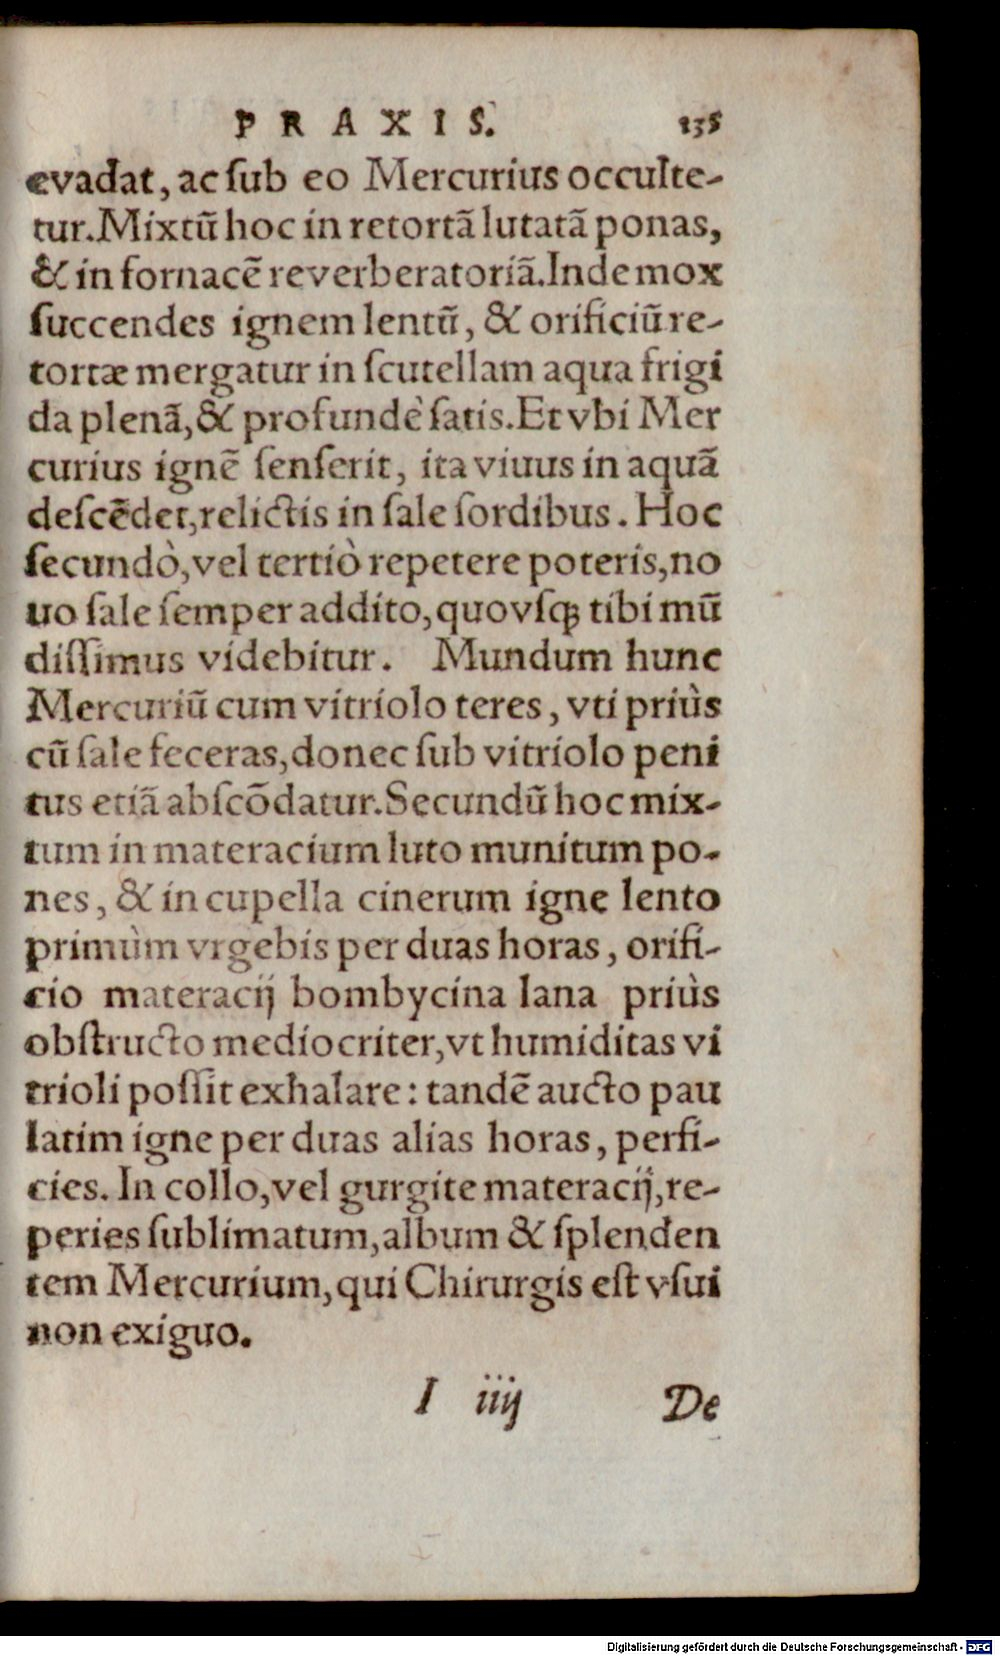 PRAXIS. 135
evadat, ac ſub eo Mercurius occulte-
tur. Mixtũ hoc in retortã lutatã ponas,
& in fornacẽ reverberatoriã. Inde mox
ſuccendes ignem lentũ, & orificiũ re-
tortæ mergatur in ſcutellam aqua frigi
da plenã, & profundè ſatis. Et vbi Mer
curius ignẽ ſenſerit, ita viuus in aquã
deſcẽdet, relictis in ſale ſordibus. Hoc
ſecundò, vel tertiò repetere poteris, no
uo ſale ſemper addito, quovſqꝫ tibi mũ
diſſimus videbitur. Mundum hunc
Mercuriũ cum vitriolo teres, vti priùs
cũ ſale feceras, donec ſub vitriolo peni
tus etiã abſcõdatur. Secundũ hoc mix-
tum in materacium luto munitum po-
nes, & in cupella cinerum igne lento
primùm vrgebis per duas horas, orifi-
cio materacij bombycina lana priùs
obſtructo mediocriter, vt humiditas vi
trioli poſſit exhalare: tandẽ aucto pau
latim igne per duas alias horas, perfi-
cies. In collo, vel gurgite materacij, re-
peries ſublimatum, album & ſplenden
tem Mercurium, qui Chirurgis eſt vſui
non exiguo.
I iiij De
Digitalisierung gefördert durch die Deutsche Forschungsgemeinschaft - DFG